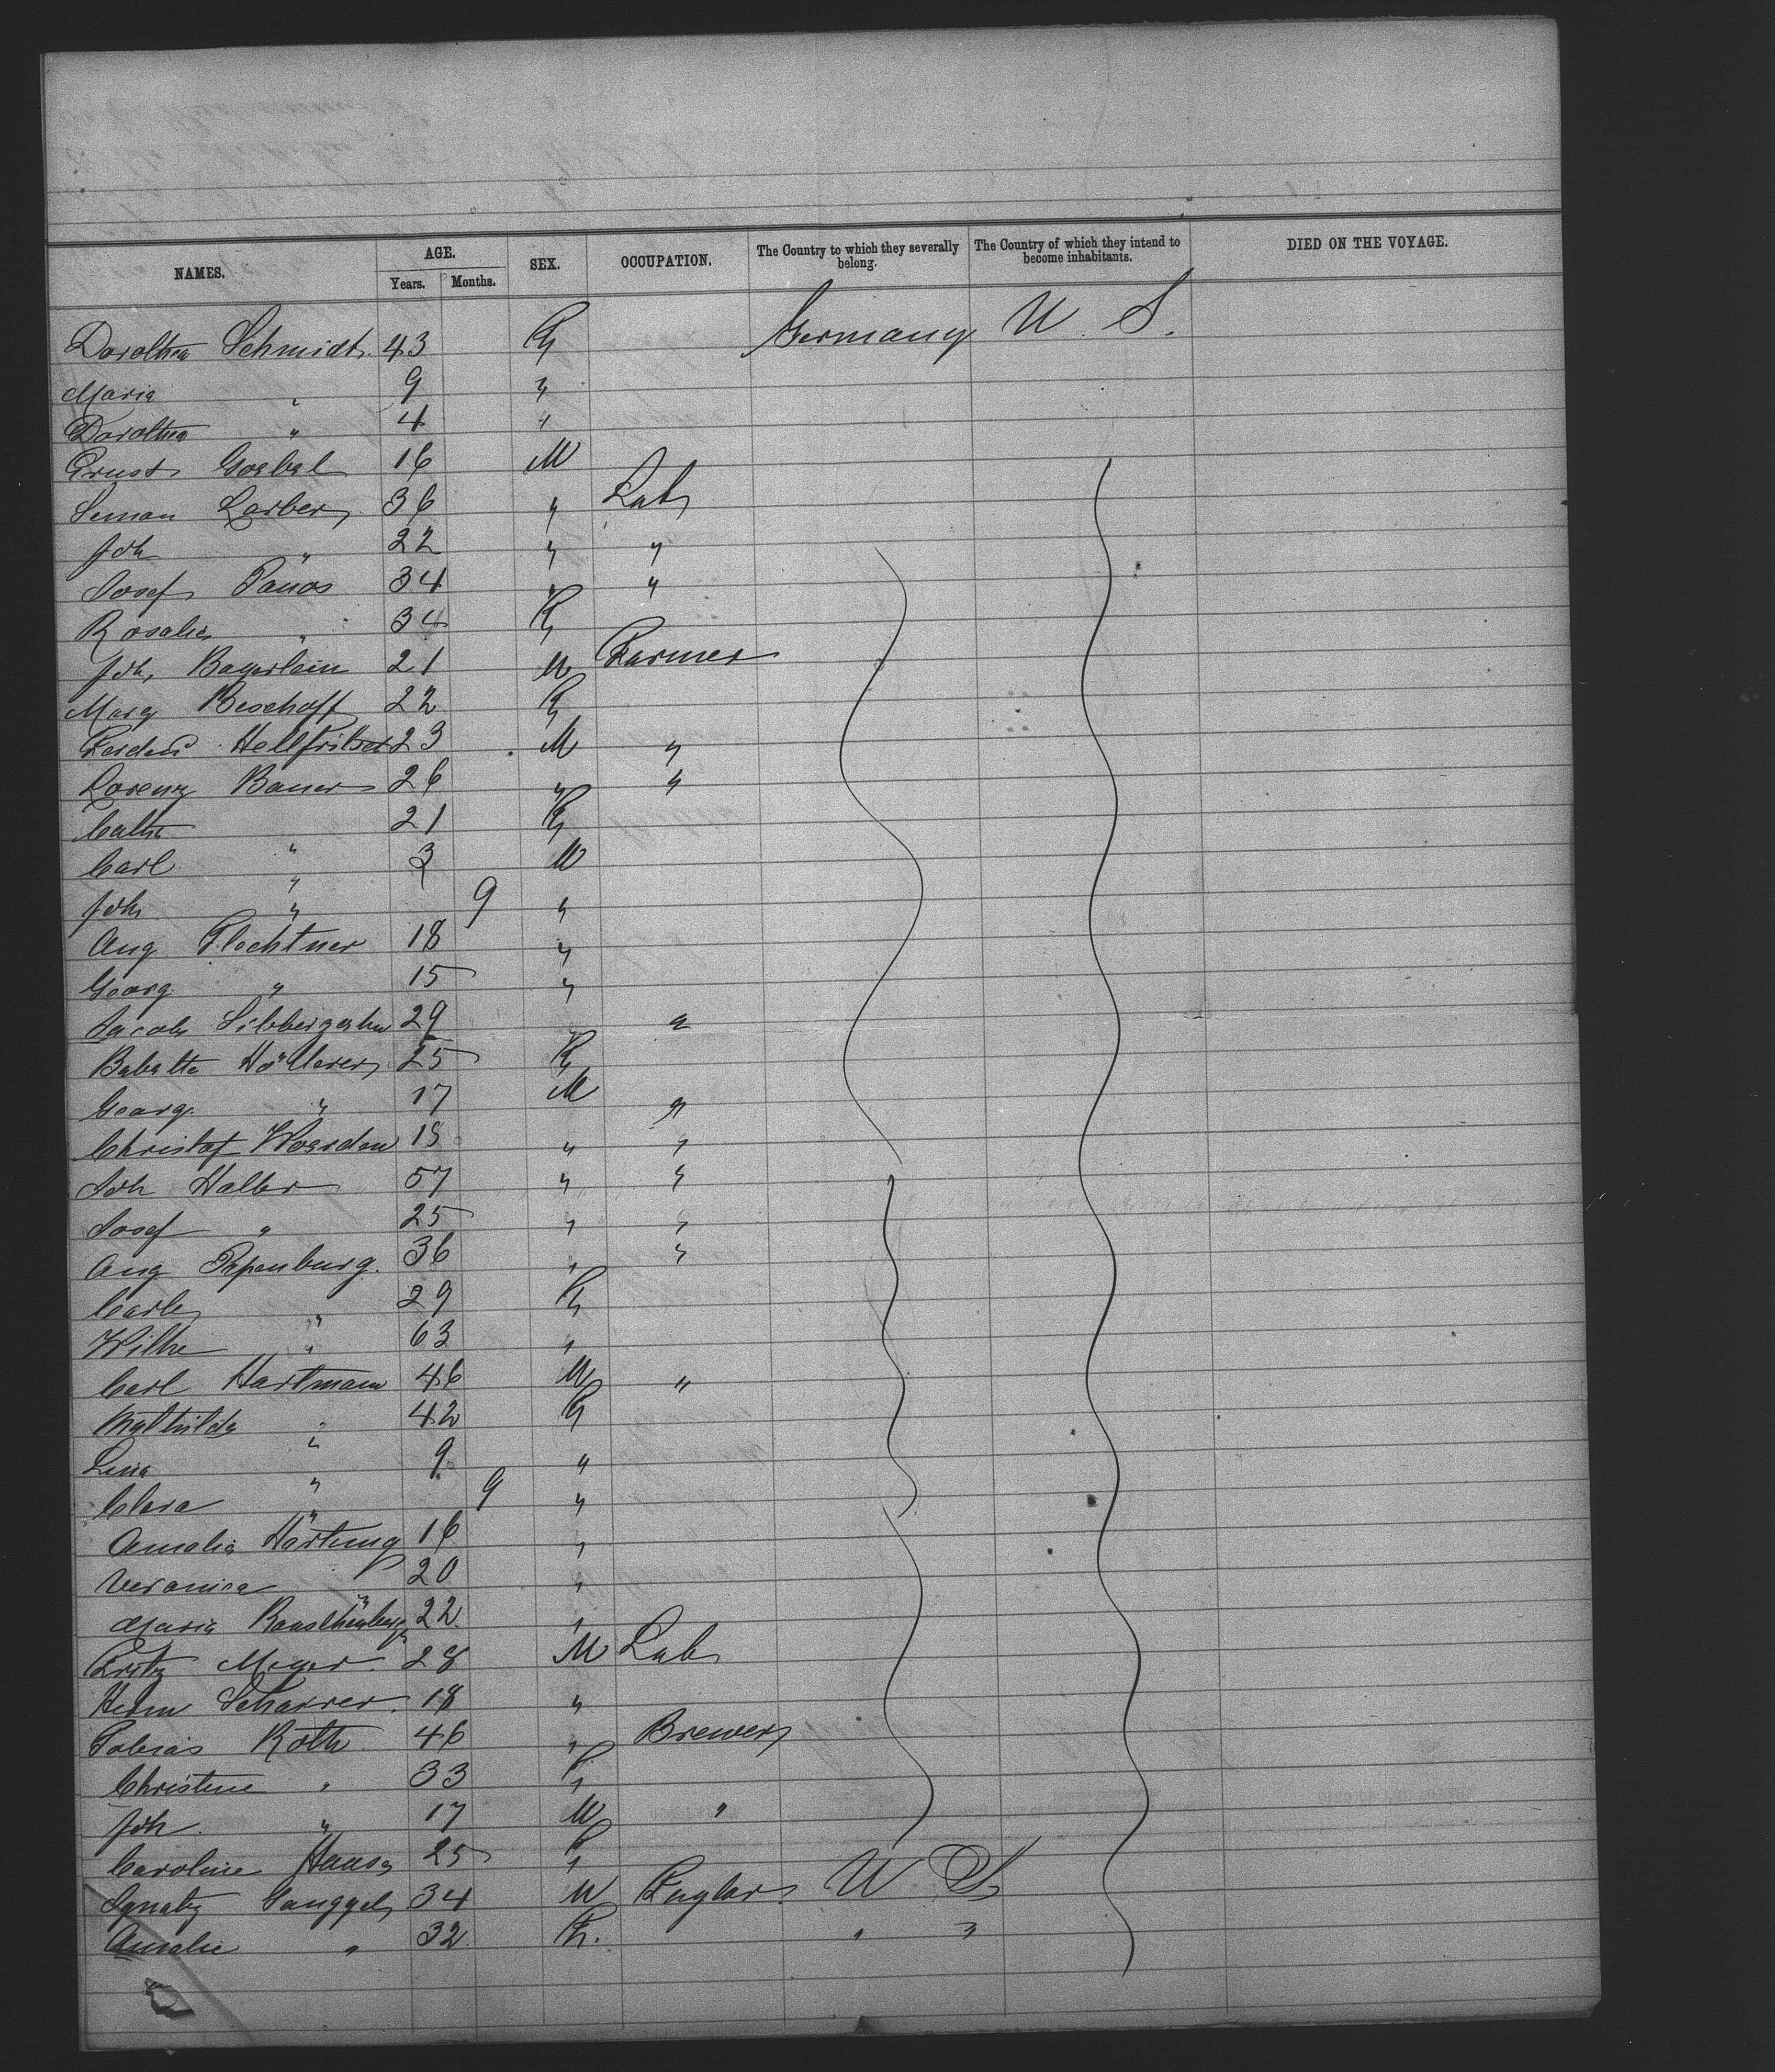 NAMES. AGE. Years. Months. SEX. OCCUPATION. The Country to which they severally belong. The Country of which they intend to become inhabitants. DIED ON THE VOYAGE.
Dorothea Schmidt. 43 F Germany U. S.
Maria " 9 "
Dorothea " 4 "
Ernst Goebel 16 M
Seman Larber 36 " Lab
Joh " 22 " "
Josef Panos 34 " "
Rosalia " 34 F
Joh. Bayerlein 21 M Farmer
Marg Beschoff 22 F
Ferdend Hellfritser 23 M "
Lorenz Bauer 26 " "
Cathr 21 F
Carl " 3 M
Joh " 9 "
Aug Flechtner 18 "
Georg " 15 "
Jacob Silberzahn 29 "
Babette Höllerer 25 F
Georg. " 17 M "
Christof Woerden 18 " "
Joh Haller 57 " "
Josef " 25 " "
Aug Papenburg. 36 " "
Carle " 29 F
Wilhe " 63 "
Carl Hartmann 46 M "
Mathilde " 42 F
Lina " 9 "
Clara " 9 "
Amalia Hartung 16 "
Veronica " 20 "
Maria 22 "
Fritz Meyer. 28 M Lab
Herm Scharrer. 18 "
Tobias Roth 46 " Brewer
Christine " 33 F
Joh " 17 M "
Caroline Hause 25 F
Ignatz Ganggel 34 M U S
Amalie " 32 F. " "